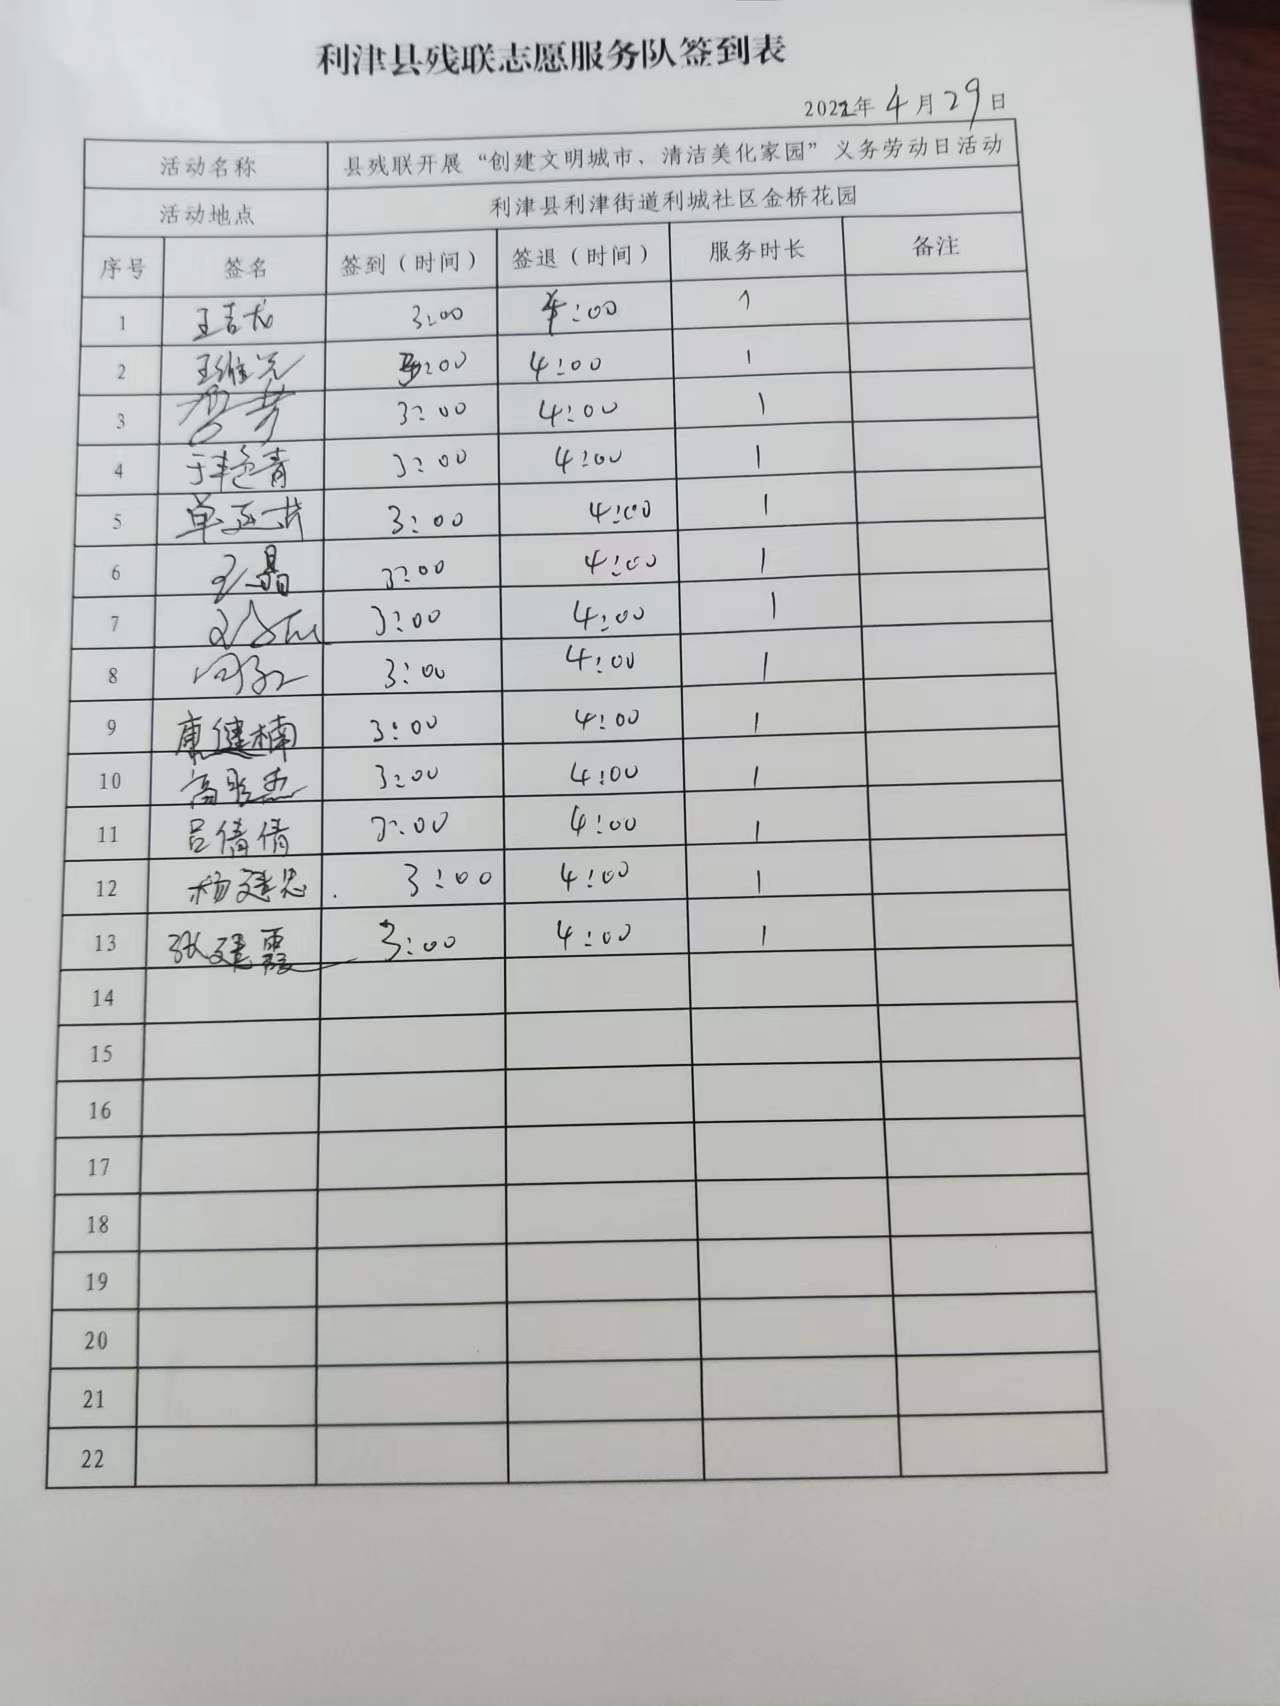 利津县残联志愿服务队签到表
2022年 4月29日
活动名称 县残联开展“创建文明城市、清洁美化家园”义务劳动日活动
活动地点 利津县利津街道利城社区金桥花园
序号 签名 签到（时间） 签退（时间） 服务时长 备注
1 王吉龙 3:00 4:00 1
2 王维元 3:00 4:00 1
3 3:00 4:00 1
4 于艳青 3:00 4:00 1
5 单 3:00 4:00 1
6 王晶 3:00 4:00 1
7 3:00 4:00 1
8 3:00 4:00 1
9 康健楠 3:00 4:00 1
10 高 杰 3:00 4:00 1
11 吕倩倩 3:00 4:00 1
12 杨建忠 3:00 4:00 1
13 张建霞 3:00 4:00 1
14
15
16
17
18
19
20
21
22